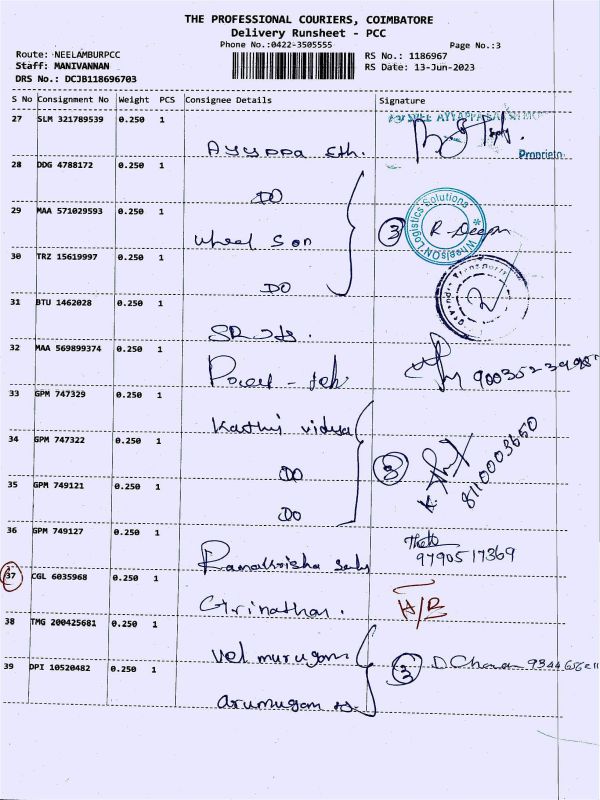 THE PROFESSIONAL COURIERS, COIMBATORE
Delivery Runsheet - PCC
Phone No.:0422-3505555
Page No.:3
Route: NEELAMBURPCC
Staff: MANIVANNAN
DRS No.: DCJB118696703
RS No.: 1186967
RS Date: 13-Jun-2023
S No Consignment No Weight PCS Consignee Details Signature
27 SLM 321789539 0.250 1
Ayyppa Eth.
Proprietor
28 DDG 4788172 0.250 1
DO
29 MAA 571029593 0.250 1
Wheel Son
3 R. Deepa
WheelsON Logistics Solutions
30 TRZ 15619997 0.250 1
DO
31 BTU 1462028 0.250 1
32 MAA 569899374 0.250 1
Power - tek
33 GPM 747329 0.250 1
Karthi vidya
34 GPM 747322 0.250 1
DO
3
8110003650
35 GPM 749121 0.250 1
DO
36 GPM 749127 0.250 1
9790517369
37 CGL 6035968 0.250 1
Girinathan.
H/R
38 TMG 200425681 0.250 1
Vel murugan
39 DPI 10520482 0.250 1
D Charan
Arumugam